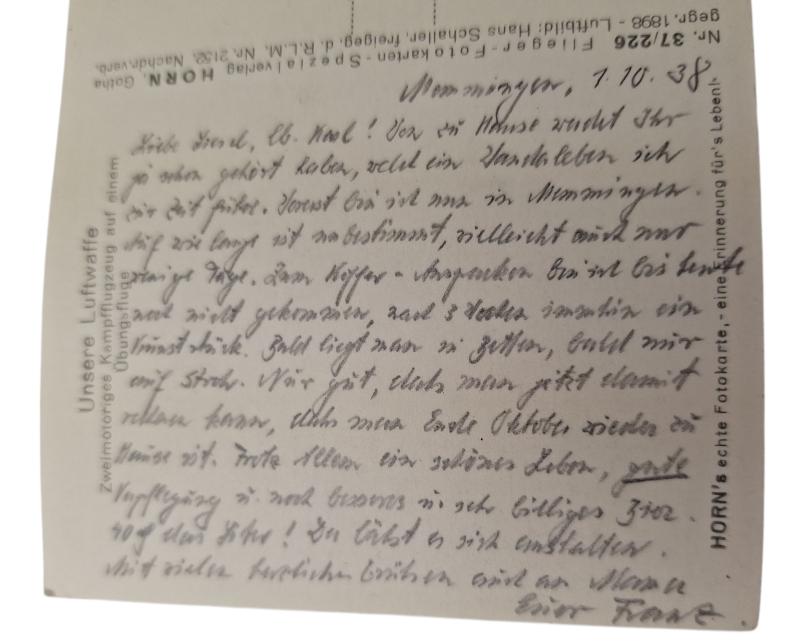 Nr. 37/226 Flieger-Fotokarten-Spezialverlag HORN, Gotha
gegr. 1898 - Luftbild: Hans Schaller, freigeg. d. R.L.M. Nr. 2152. Nachdr. verb.
Memmingen, 1.10.38
Liebe Liesel, lb. Karl! Von zu Hause werdet Ihr
ja schon gehört haben, welch ein Wanderleben ich
zur Zeit führe. Vorerst bin ich nun in Memmingen.
Auf wie lange ist unbestimmt, vielleicht auch nur
wenige Tage. Zum Koffer-Auspacken bin ich bis heute
noch nicht gekommen, nach 3 Wochen immerhin ein
Kunststück. Bald liegt man in Betten, bald nur
auf Stroh. Nur gut, daß man jetzt damit
rechnen kann, daß man Ende Oktober wieder zu
Hause ist. Trotz Allem ein schönes Leben, gute
Verpflegung u. noch besseres u. sehr billiges Bier.
40 das Liter! Da läßt es sich aushalten.
Mit vielen herzlichen Grüßen auch an Mama
Euer Franz
Unsere Luftwaffe
Zweimotoriges Kampfflugzeug auf einem
Übungsfluge
HORN's echte Fotokarte,- eine Erinnerung für's Leben!